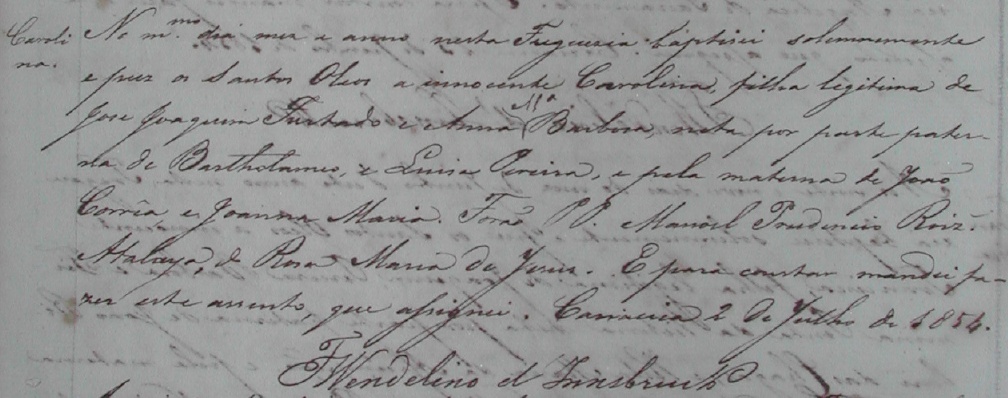 Caroli
na.
No m.mo dia mez e anno nesta Freguezia baptisei solemnemente
e puz os Santos Oleos a innocente Carolina, filha legitima de
Jose Joaquim Furtado e Anna Ma Barbosa, neta por parte pater-
na de Bartholameo, e Luisa Pereira, e pela materna de João
Corrêa, e Joanna Maria. Forão PP. Manoel Prudencio Roiz.
Atalaya, e Rosa Maria de Jesus. E para constar mandei fa-
zer este assento, que assignei. 2 de Julho de 1854.
Wendelino d' Innsbruck